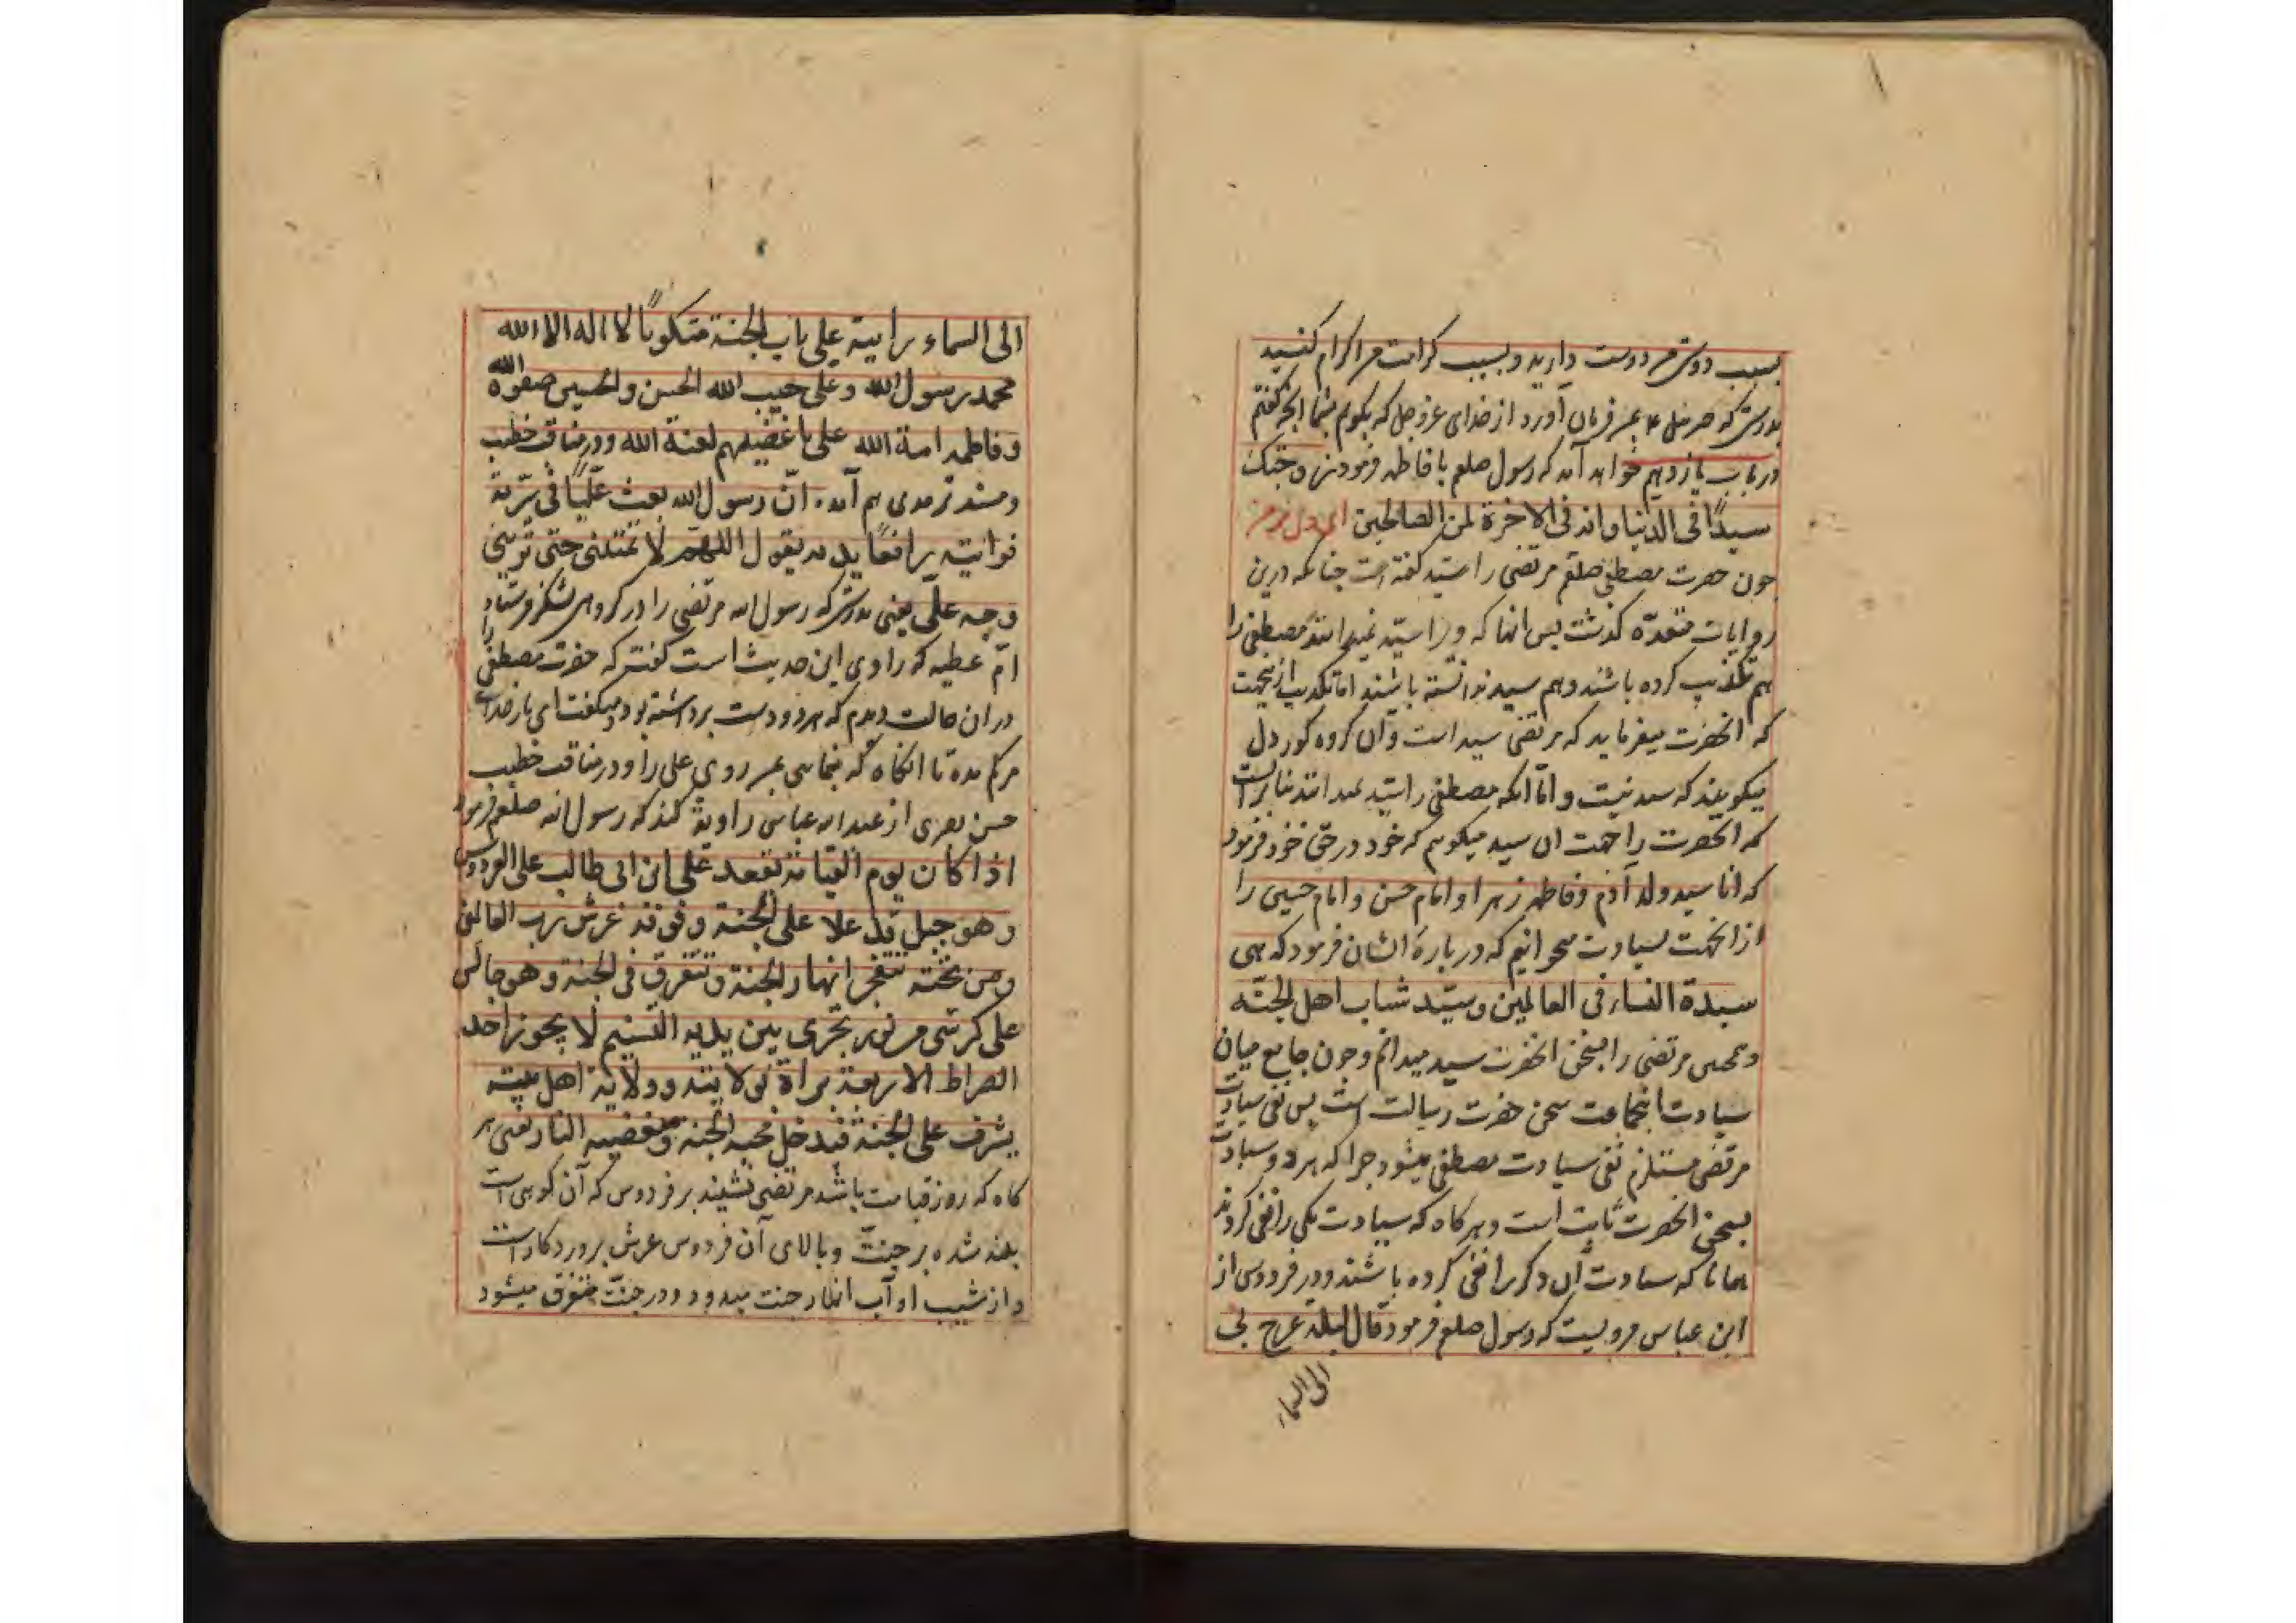 بسبب دوستی من دوست دارید و بسبب کرامت من اکرام کنید
بدرستی که جبرئیل ع بمن فرمان آورد از خدای عزوجل که بگویم بشما آنچه گفتم
در باب یازدهم خواهد آمد که رسول صلعم با فاطمه فرمود زوجتک
سیدًا فی الدنیا وانه فی الاخرة لمن الصالحین
چون حضرت مصطفی صلعم مرتضی را سید گفته است چنانکه درین
روایات متعدّه کذشت پس انها که ویرا سیّد نمیدانند مصطفی را
هم تکذیب کرده باشند و هم سید ندانسته باشند اما تکذیب ازینجهت
که انحضرت میفرماید که مرتضی سید است و آن کروه کور دل
میکویند که سید نیست و امّا انکه مصطفی را سید نمیدانند بنابرانست
که انحضرت را جهت ان سید میکوییم که خود در حق خود فرمود
که انا سید ولد آدم و فاطمه زهرا و امام حسن و امام حسین را
از انجهت بسیادت میخوانیم که درباره ایشان فرمود که هی
سیدة النساء فی العالمین و سیّد شباب اهل الجنّه
و همچنین مرتضی را بسخن انحضرت سید میدانیم و چون جامع میان
سیادت اینجماعت سخن حضرت رسالت است پس نفی سیادت
مرتضی مستلزم نفی سیادت مصطفی میشود چرا که هر دو سیادت
بسخن انحضرت ثابت است و هر کاه که سیادت یکی را نفی کردند
همانا که سیادت آن دکر را نفی کرده باشند و در فردوس از
ابن عباس مرویست که رسول صلعم فرمود قال لیلة عرج بی
الی السماء
الی السماء رایت علی باب الجنة متکوبًا لا اله الا الله
محمد رسول الله وعلی حبیب الله الحسن والحسین صفوة الله
وفاطمه امة الله علی باغضیهم لعنة الله و در مناقب خطیب
و مسند ترمدی هم آمده انّ رسول الله بعث علّیًا فی سّریة
فرایته رافعًا یدیه یقول اللهم لا تمتنی حتی ترینی
وجه علّی یعنی بدرستی که رسول الله مرتضی را در کروهی لشکر فرستاد
امّ عطیه که راوی این حدیث است کفت که حضرت مصطفی را
در ان حالت دیدم که هر دو دست برداشته بود و میکفت ای بار خدای
مرکم مده تا انکاه که بنمایی بمن روی علی را و در مناقب خطیب
حسن بصری از عبد الله عباس روایة کند که رسول الله صلعم فرمود
اذا کان یوم القیامة یقعد علی ابن ابی طالب علی الفردوس
وهو جبل قد علا علی الجنة وفوقه عرش رب العالمین
ومن تحته تتفجر انهار الجنة وتتفرق فی الجنة وهو جالس
علی کرسّی من نور یجری بین یدیه التسنیم لا یجوز احد
الصراط الا ومعه براة بولایته و ولایة اهل بیته
یشرف علی الجنة فیدخل محبه الجنة ومبغضیه النار یعنی هر
کاه که روز قیامت باشد مرتضی نشیند بر فردوس که آن کوهی است
بلند شده بر جنّت و بالای آن فردوس عرش پروردکار است
و از شیب او آب انهار جنت میدود و در جنّت متفرق میشود